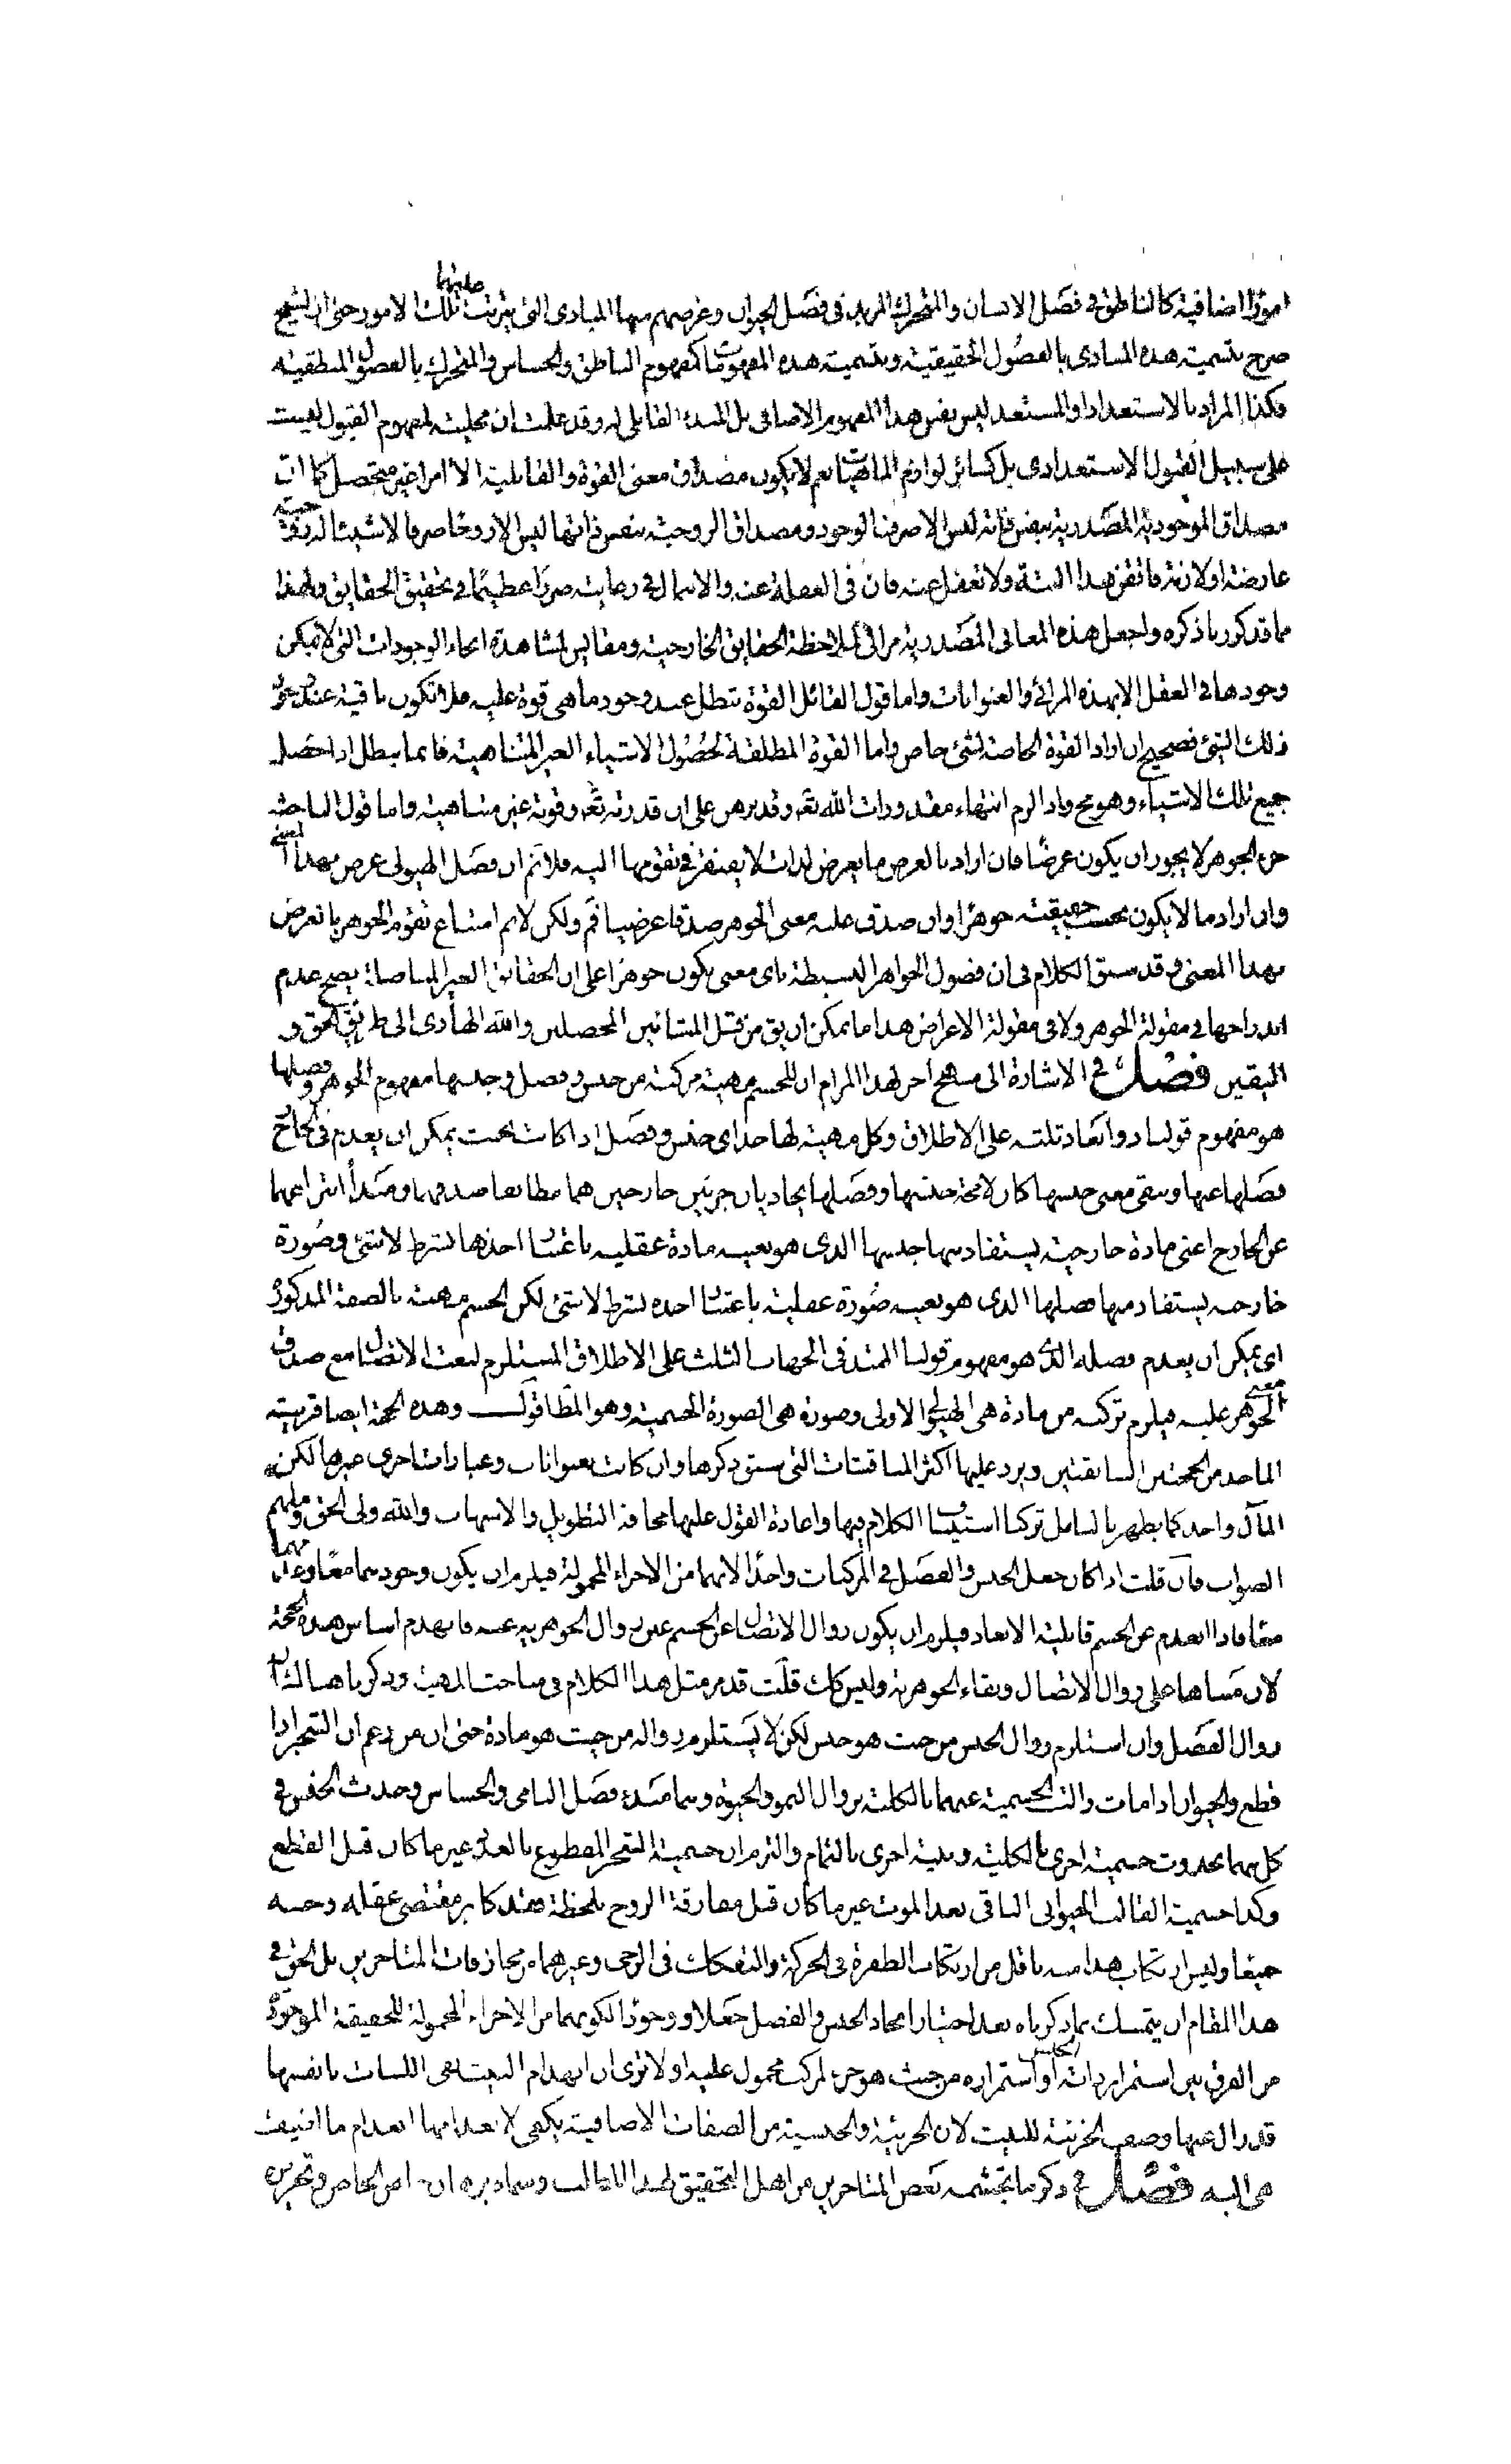 امورا اضافية كالناطق فى فصل الانسان والمتحرك المريد فى فصل الحيوان وغرضهم منها المبادى التى يترتب عليها تلك الامور حتى ان الشيخ
صرح بتسمية هذه المبادى بالفصول الحقيقية وبتسمية هذه المفهومات كمفهوم الناطق والحساس والمتحرك بالفصول المنطقية
فكذا المراد بالاستعداد او المستعد ليس نفس هذا المفهوم الاضافى بل المبدء القابلى له وقد علمت ان محلية لمفهوم القبول ليست
على سبيل القبول الاستعدادى بل كسائر لوازم الماهيات نعم لا يكون مصداق معنى القوة والقابلية الا امرا غير متحصل كما ان
مصداق الموجودية المصدرية بنفس ذاته ليس الا صرف الوجود ومصداق الزوجية بنفس ذاتها ليس الا زوجا صرفا لا شيئا له زوجية
عارضة او لازمة فاتقن هذا البتة ولا تغفل عنه فان فى الغفلة عنه والاهمال فى رعايته ضررا عظيما فى تحقيق الحقايق ولهذا
مما قد كررنا ذكره واجعل هذه المعانى المصدرية مرائى لملاحظة الحقايق الخارجية ومقاييس لمشاهدة انحاء الوجودات التى لا يمكن
وجودها فى العقل الا بهذه المرائى والعنوانات واما قول القائل القوة تبطل عند وجود ما هى قوة عليه فلا تكون باقية عند وجود
ذلك الشئ فصحيح ان اراد القوة الخاصة لشئ خاص واما القوة المطلقة لحصول الاشياء الغير المتناهية فانما يبطل اذا حصل
جميع تلك الاشياء وهو مح واذ الزم انتهاء مقدورات الله تعه وقد برهن على ان قدرته تعه وقوته غير متناهية واما قول الباحث
جزء الجوهر لا يجوز ان يكون عرضا فان اراد بالعرض ما يعرض لذات لا يفتقر فى تقومها اليه فلا نم ان فصل الهيولى عرض بهذا المعنى
وان اراد ما لا يكون بحسب حقيقته جوهرا وان صدق عليه معنى الجوهر صدقا عرضيا فم ولكن لا نم امتناع تقوم الجوهر بالعرض
بهذا المعنى وقد سبق الكلام فى ان فصول الجواهر البسيطة باى معنى يكون جوهرا على ان الحقائق الغير المتاصلة يصح عدم
اندراجها فى مقولة الجوهر ولا فى مقولة الاعراض هذا ما يمكن ان يق من قبل المشائين المحصلين والله الهادى الى طريق الحق و
اليقين فصل فى الاشارة الى منهج اخر لهذا المرام ان للجسم مهية مركبة من جنس وفصل وجنسها مفهوم الجوهر وفصلها
هو مفهوم قولنا ذو ابعاد ثلثة على الاطلاق وكل مهية لها حد اى جنس وفصل اذا كانت بحيث يمكن ان يعدم فى الخارج
فصلها عنها وبقى معنى جنسها كان لا محة جنسها وفصلها يحاذيان جزئين خارجين هما مطابقا صدقهما ومبدأ انتزاعهما
عن الخارج اعنى مادة خارجية يستفاد منها جنسها الذى هو بعينه مادة عقلية باعتبار اخذها بشرط لا شئ وصورة
خارجية يستفاد منها فصلها الذى هو بعينه صورة عقلية باعتبار اخذه بشرط لا شئ لكن الجسم مهية بالصفة المذكورة
اى يمكن ان يعدم فصله الذى هو مفهوم قولنا الممتد فى الجهات الثلث على الاطلاق المستلزم لبعث الانفصال مع صدق
معنى الجوهر عليه فيلزم تركبه من مادة هى الهيولى الاولى وصورة هى الصورة الجسمية وهو المط اقول وهذه الحجة ايضا قريبة
الماخذ من الحجتين السابقتين ويرد عليها اكثر المناقشات التى سبق ذكرها وان كانت بعنوانات وعبارات اخرى غيرها لكن
المآل واحد كما يظهر بالتامل تركنا استيناف الكلام فيها واعادة القول عليها مخافة التطويل والاسهاب والله ولى الحق وملهم
الصواب فان قلت اذا كان جعل الجنس والفصل فى المركبات واحدا لانهما من الاجزاء المحمولة فيلزم ان يكون وجودهما معا وعدمهما
معا فاذا انعدم عن الجسم قابلية الابعاد فيلزم ان يكون زوال الاتصال عن الجسم عين زوال الجوهرية عنه فانهدم اساس هذه الحجة
لان مبناها على زوال الاتصال وبقاء الجوهرية وليس كك قلت قد مر مثل هذا الكلام فى مباحث المهية وذكرنا هناك ان
زوال الفصل وان استلزم زوال الجنس من حيث هو جنس لكن لا يستلزم زواله من حيث هو مادة حتى ان من زعم ان الشجر اذا
قطع والحيوان اذا مات زالت الجسمية عنهما بالكلية بزوال النمو والحيوة وهما مبدء فصل النامى والحساس وحدث الجنس فى
كل منهما بحدوث جسمية اخرى بالكلية وبنية اخرى بالتمام والتزم ان جسمية الشجر المقطوع بالفعل غير ما كان قبل القطع
وكذا جسمية القالب الحيوانى الباقى بعد الموت غير ما كان قبل مفارقة الروح بلحظة فقد كابر مقتضى عقله وحسه
جميعا وليس ارتكاب هذا منه باقل من ارتكاب الطفرة فى الحركة والتفكك فى الرحى وغيرهما من مجازفات المتاخرين بل الحق فى
هذا المقام ان يتمسك بما ذكرناه بعد اختيار اتحاد الجنس والفصل جعلا ووجودا لكونهما من الاجزاء المحمولة للحقيقة الموجودة
من الفرق بين استمرار ذات الجنس او استمراره من حيث هو جزء لمركب محمول عليه اولا ترى ان انهدام البيت بقى اللبنات بانفسها
قد زال عنها وصف الجزئية للبيت لان الجزئية والجنسية من الصفات الاضافية يكفى لانعدامها انعدام ما اضيف
هى اليه فصل فى ذكر ما تجشمه بعض المتاخرين من اهل التحقيق لهذا المطلب